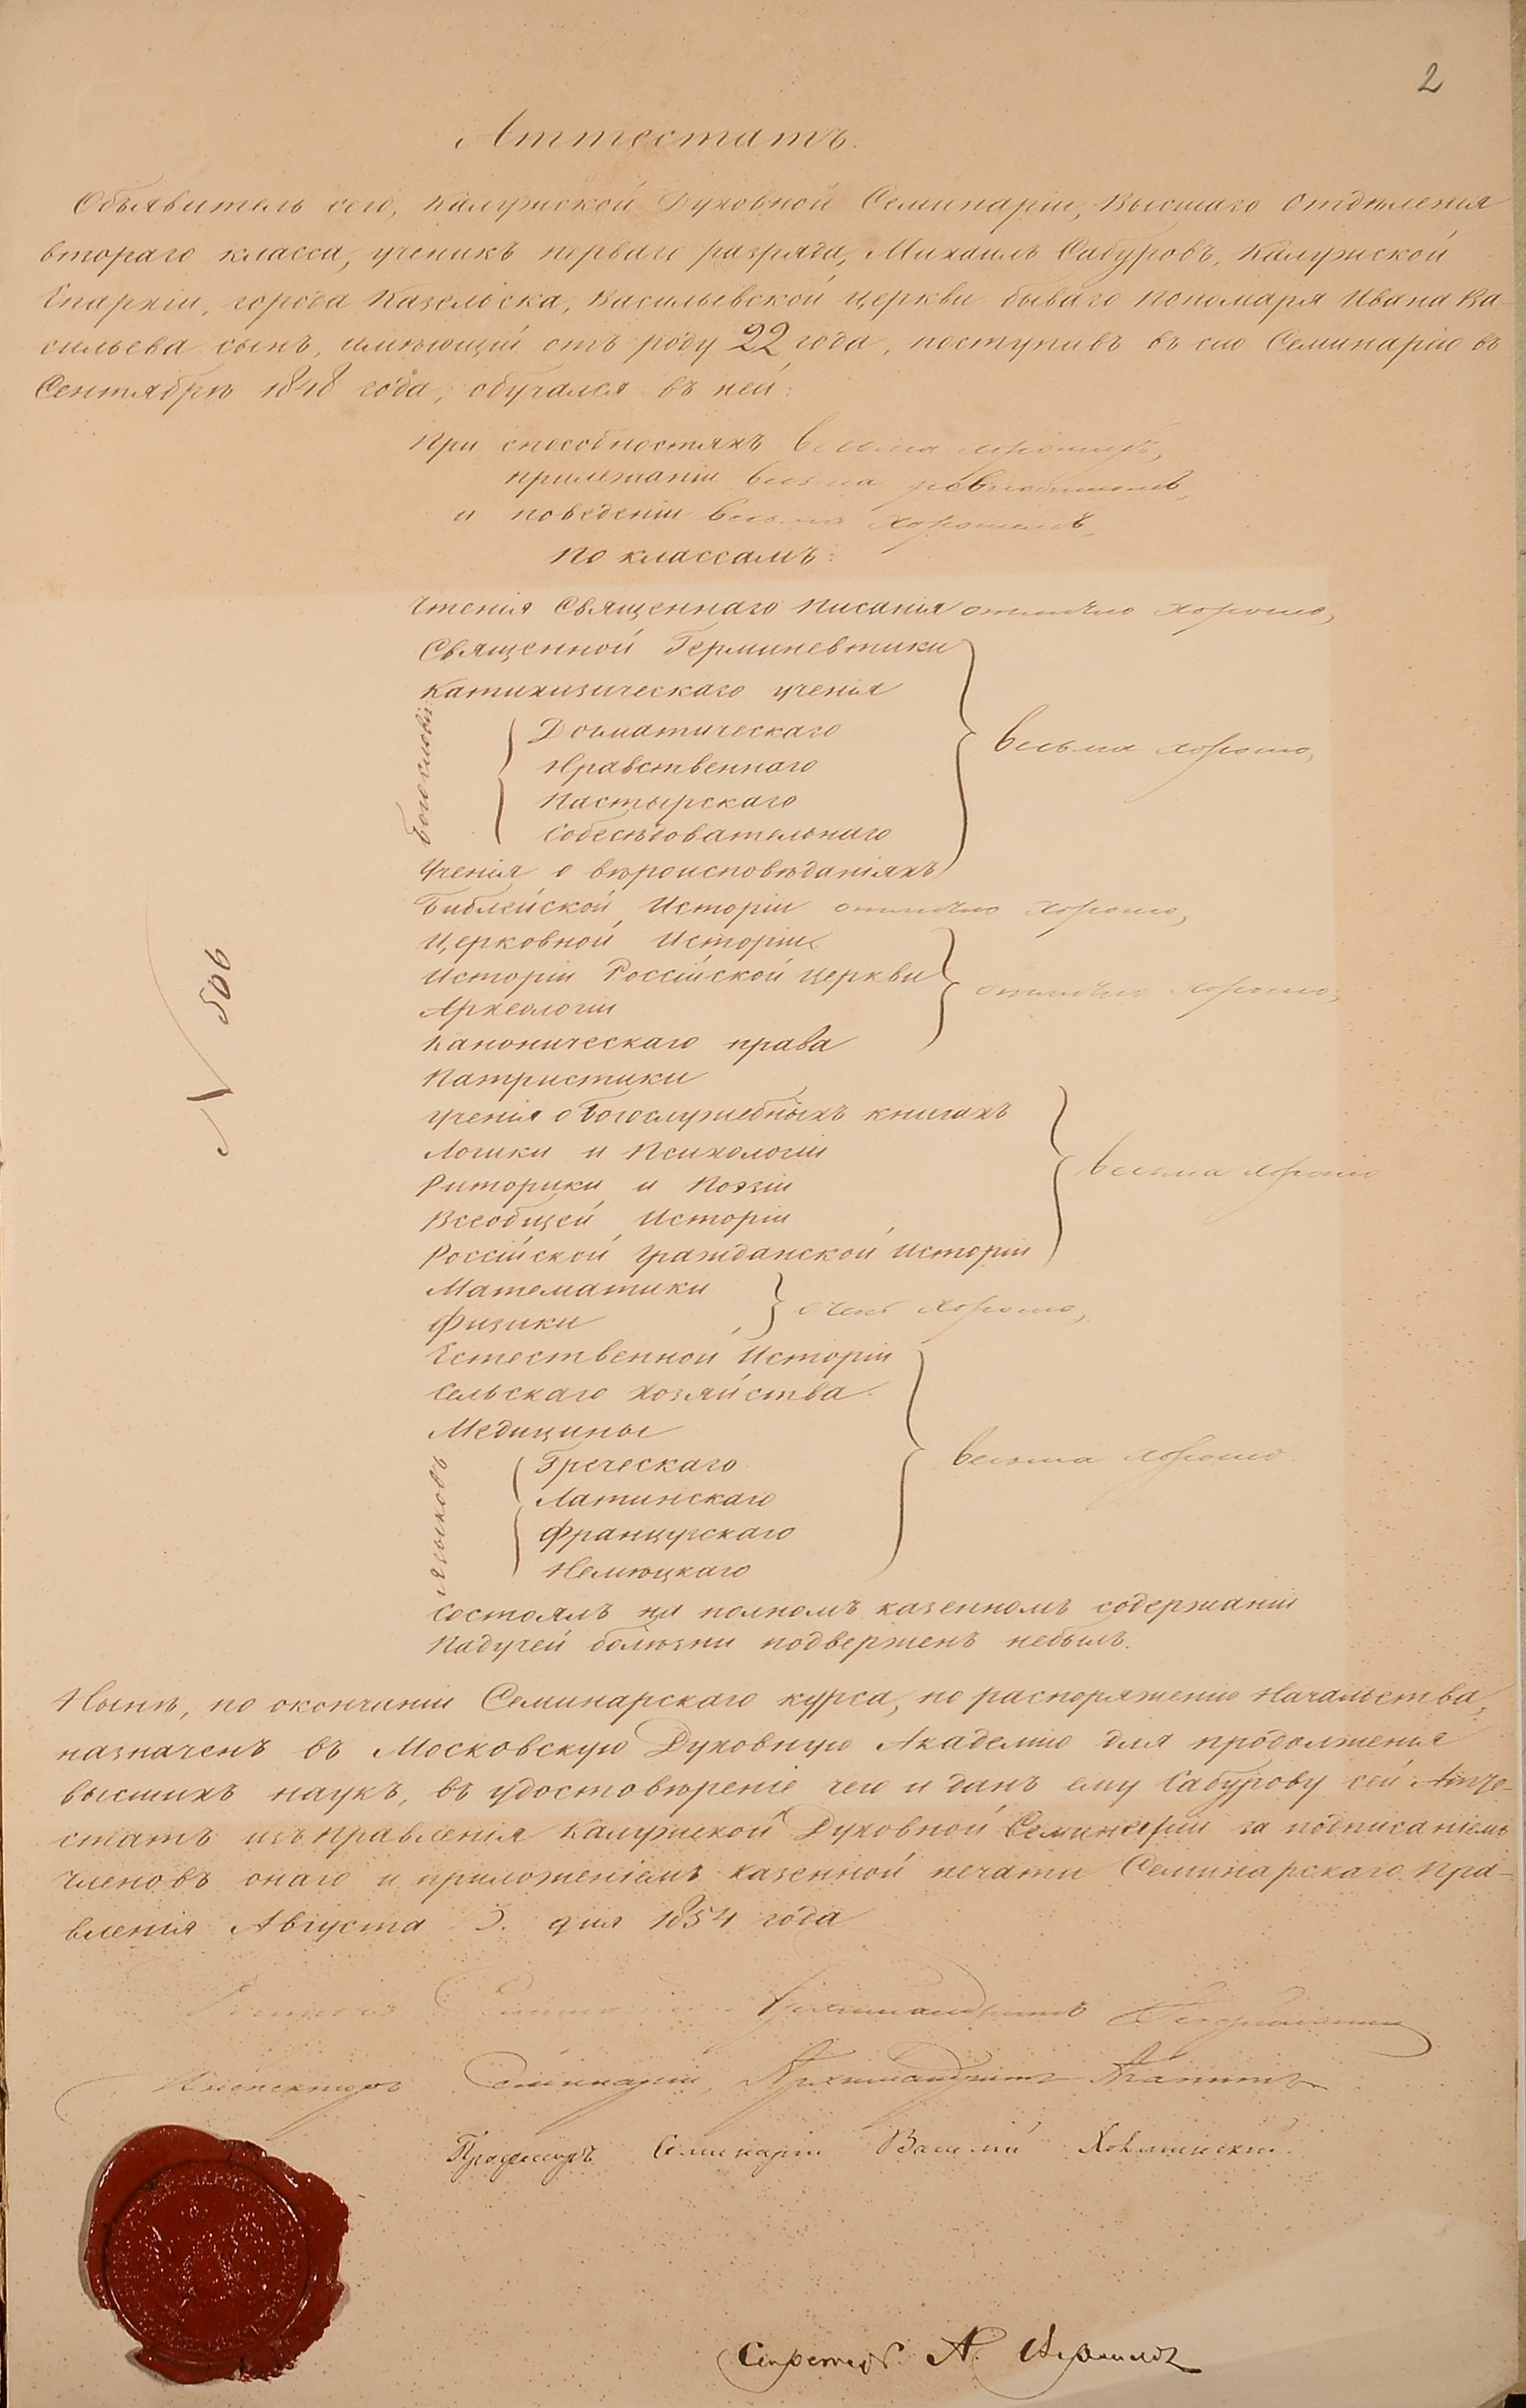 2
Аттестатъ.
Объявитель сего, Калужской Духовной Семинаріи, Высшаго Отдѣленія
втораго класса, ученикъ перваго разряда, Михаилъ Сабуровъ, Калужской
Епархіи, города Казельска, Васильевской церкви бываго Пономаря Ивана Ва-
сильева сынъ, имѣющій отъ роду 22 года, поступивъ въ сію Семинарію въ
Сентябрѣ 1848 года, обучался въ ней:
При способностяхъ весьма хорошихъ,
прилежаніи весьма ревностномъ,
и поведеніи весьма хорошемъ,
По классамъ:
Чтенія Священнаго Писанія отлично хорошо,
Священной Герминевтики
Катихизическаго ученія
Богословія
Догматическаго
Нравственнаго
Пастырскаго
Собесѣдовательнаго
весьма хорошо,
Ученія о вѣроисповѣданіяхъ
Библейской Исторіи отлично хорошо,
Церковной Исторіи
Исторіи Россійской церкви
Археологіи
отлично хорошо,
Каноническаго права
Патристики
Ученія о Богослужебныхъ книгахъ
Логики и Психологіи
Риторики и Поэзіи
весьма хорошо
Всеобщей Исторіи
Россійской Гражданской Исторіи
Математики
Физики
очень хорошо,
Естественной Исторіи
Сельскаго Хозяйства
Медицины
Языковъ
Греческаго
Латинскаго
Французскаго
Немѣцкаго
весьма хорошо
Состоялъ на полномъ казенномъ содержаніи
Падучей болѣзни подверженъ небылъ.
N 506
Нынѣ, по окончаніи Семинарскаго курса, по распоряженію Начальства,
назначенъ въ Московскую Духовную Академію для продолженія
высшихъ наукъ, въ удостовѣреніе чего и данъ ему Сабурову сей Атте-
статъ изъ Правленія Калужской Духовной Семинаріи за подписаніемъ
членовъ онаго и приложеніемъ казенной печати Семинарскаго Пра-
вленія Августа дня 1854 года
Архимандритъ
Инспекторъ Семинаріи, Архимандритъ
Професоръ Семинаріи Василій
Секретарь А.